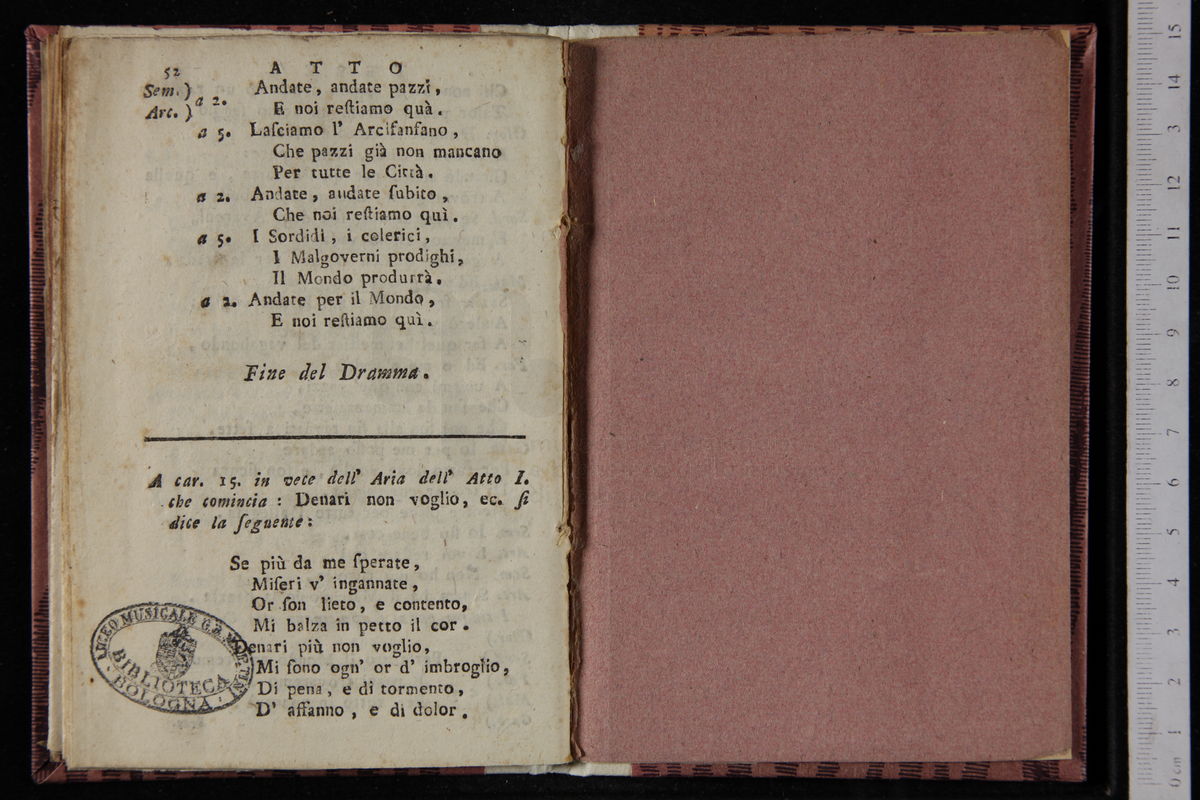 52 ATTO
Sem. ) a 2. Andate, andate pazzi,
Arc. ) E noi reſtiamo quà.
a 5. Laſciamo l' Arcifanfano,
Che pazzi già non mancano
Per tutte le Città.
a 2. Andate, audate ſubito,
Che noi reſtiamo quì.
a 5. I Sordidi, i colerici,
I Malgoverni prodighi,
Il Mondo produrrà.
a 2. Andate per il Mondo,
E noi reſtiamo quì.
Fine del Dramma.
A car. 15. in vece dell' Aria dell' Atto I.
che comincia: Denari non voglio, ec. ſi
dice la ſeguente:
Se più da me ſperate,
Miſeri v' ingannate,
Or ſon lieto, e contento,
Mi balza in petto il cor.
Denari più non voglio,
Mi ſono ogn' or d' imbroglio,
Di pena, e di tormento,
D' affanno, e di dolor.
LICEO MUSICALE G.B. MARTINI
BIBLIOTECA
BOLOGNA
0 cm 1 2 3 4 5 6 7 8 9 10 11 12 13 14 15